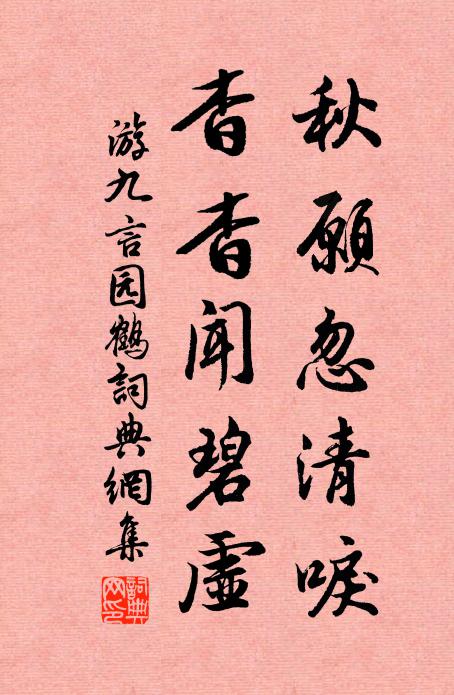 秋願忽清唳
杳杳闻碧虛
游九言园鶴詞典網集
詞典
网印